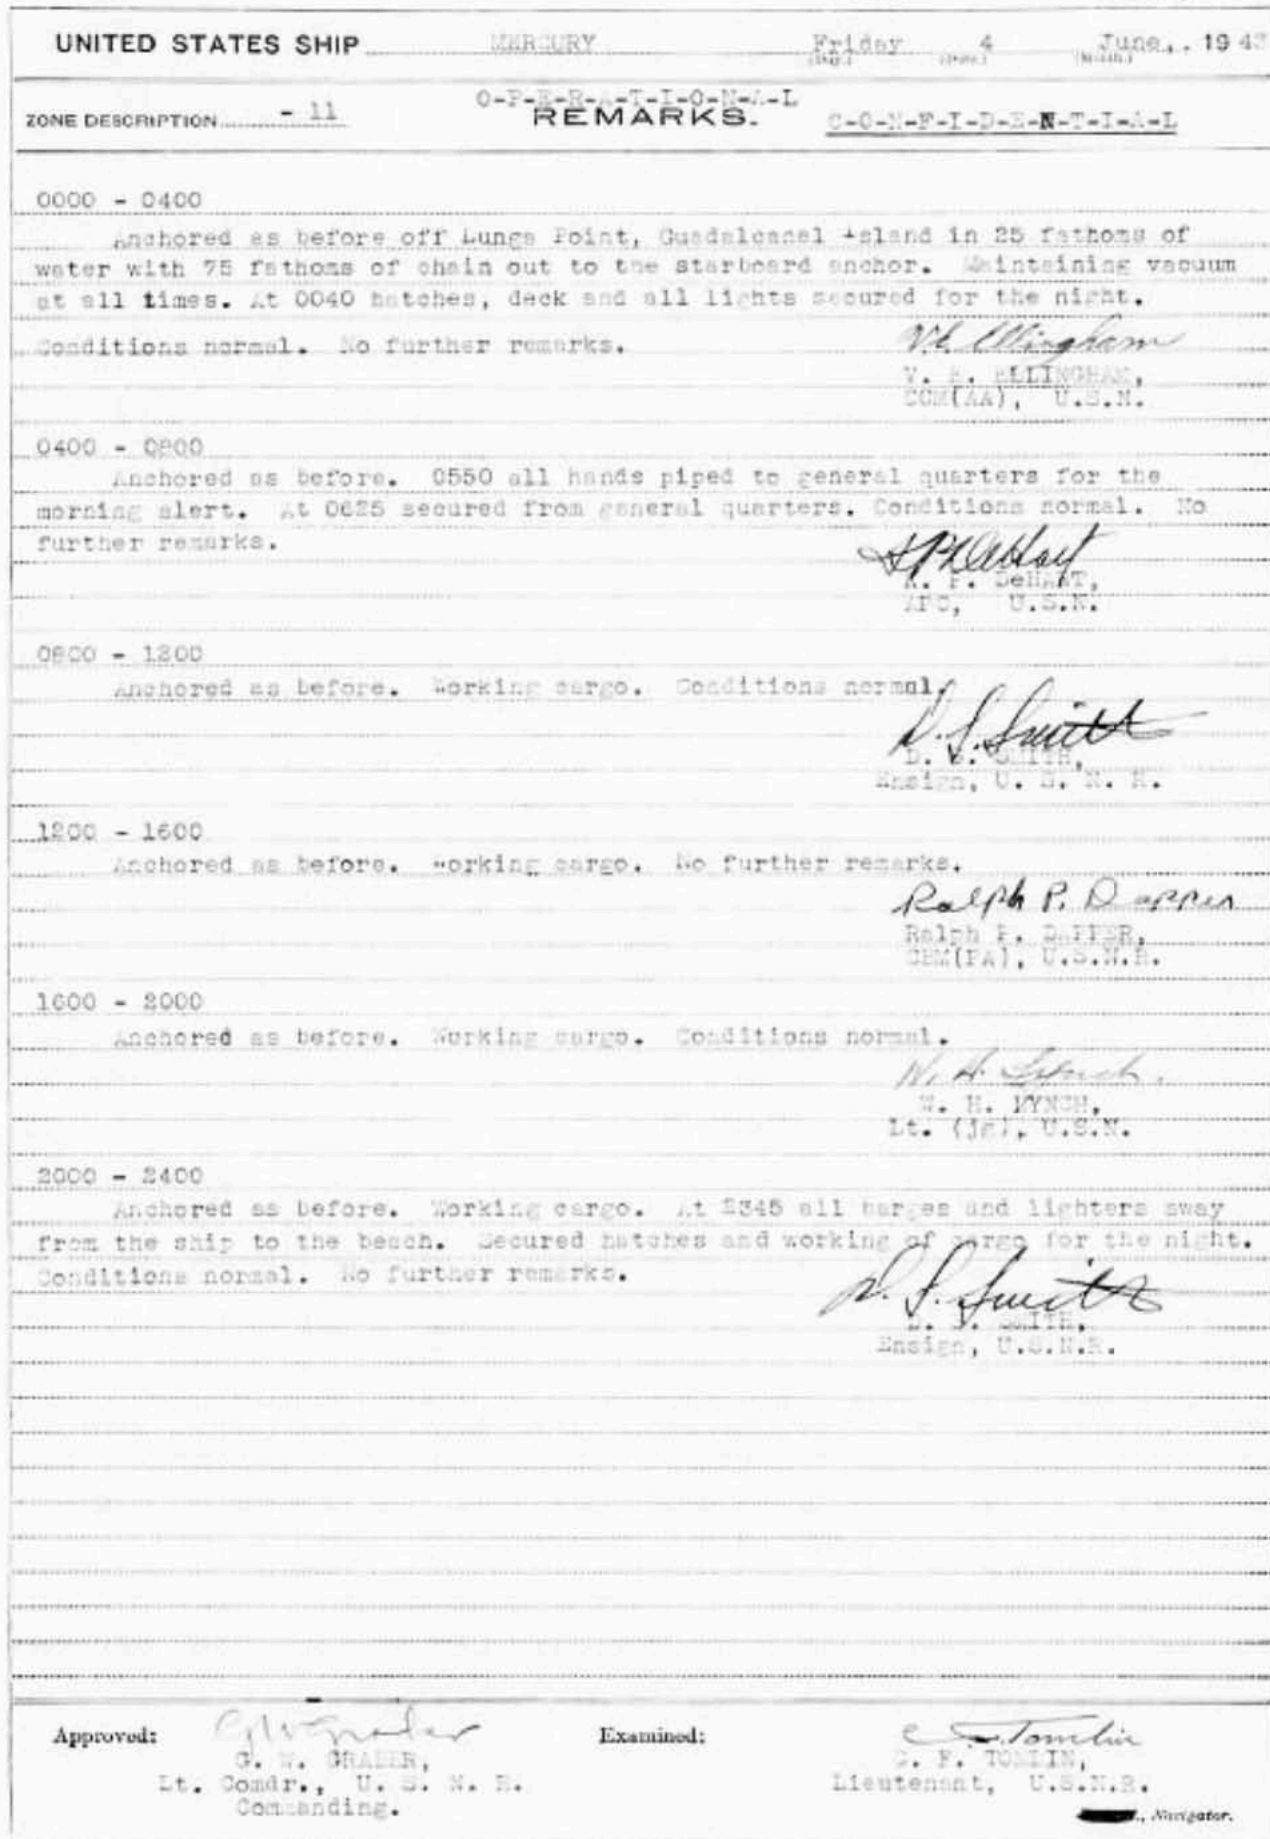 UNITED STATES SHIP MERCURY Friday 4 June, 1943
(Day.) (Date.) (Month.)
O-P-E-R-A-T-I-O-N-A-L
ZONE DESCRIPTION - 11 REMARKS. C-O-N-F-I-D-E-N-T-I-A-L
0000 - 0400
Anchored as before off Lunga Point, Guadalcanal Island in 25 fathoms of
water with 75 fathoms of chain out to the starboard anchor. Maintaining vacuum
at all times. At 0040 hatches, deck and all lights secured for the night.
Conditions normal. No further remarks.
V. E. Ellingham
V. E. ELLINGHAM,
CCM(AA), U.S.N.
0400 - 0800
Anchored as before. 0550 all hands piped to general quarters for the
morning alert. At 0625 secured from general quarters. Conditions normal. No
further remarks.
P. DeHART,
U.S.N.
0800 - 1200
Anchored as before. Working cargo. Conditions normal.
D. S. Smith
D. S. SMITH,
Ensign, U. S. N. R.
1200 - 1600
Anchored as before. Working cargo. No further remarks.
Ralph P. Dapper
Ralph P. DAPPER,
CBM(PA), U.S.N.R.
1600 - 2000
Anchored as before. Working cargo. Conditions normal.
W. H. Lynch
W. H. LYNCH,
Lt. (jg), U.S.N.
2000 - 2400
Anchored as before. Working cargo. At 2345 all barges and lighters away
from the ship to the beach. Secured hatches and working of cargo for the night.
Conditions normal. No further remarks.
D. S. Smith
D. S. SMITH,
Ensign, U.S.N.R.
Approved: G W Graber Examined: C. F. Tomlin
G. W. GRABER, C. F. TOMLIN,
Lt. Comdr., U. S. N. R. Lieutenant, U.S.N.R.
Commanding. , Navigator.